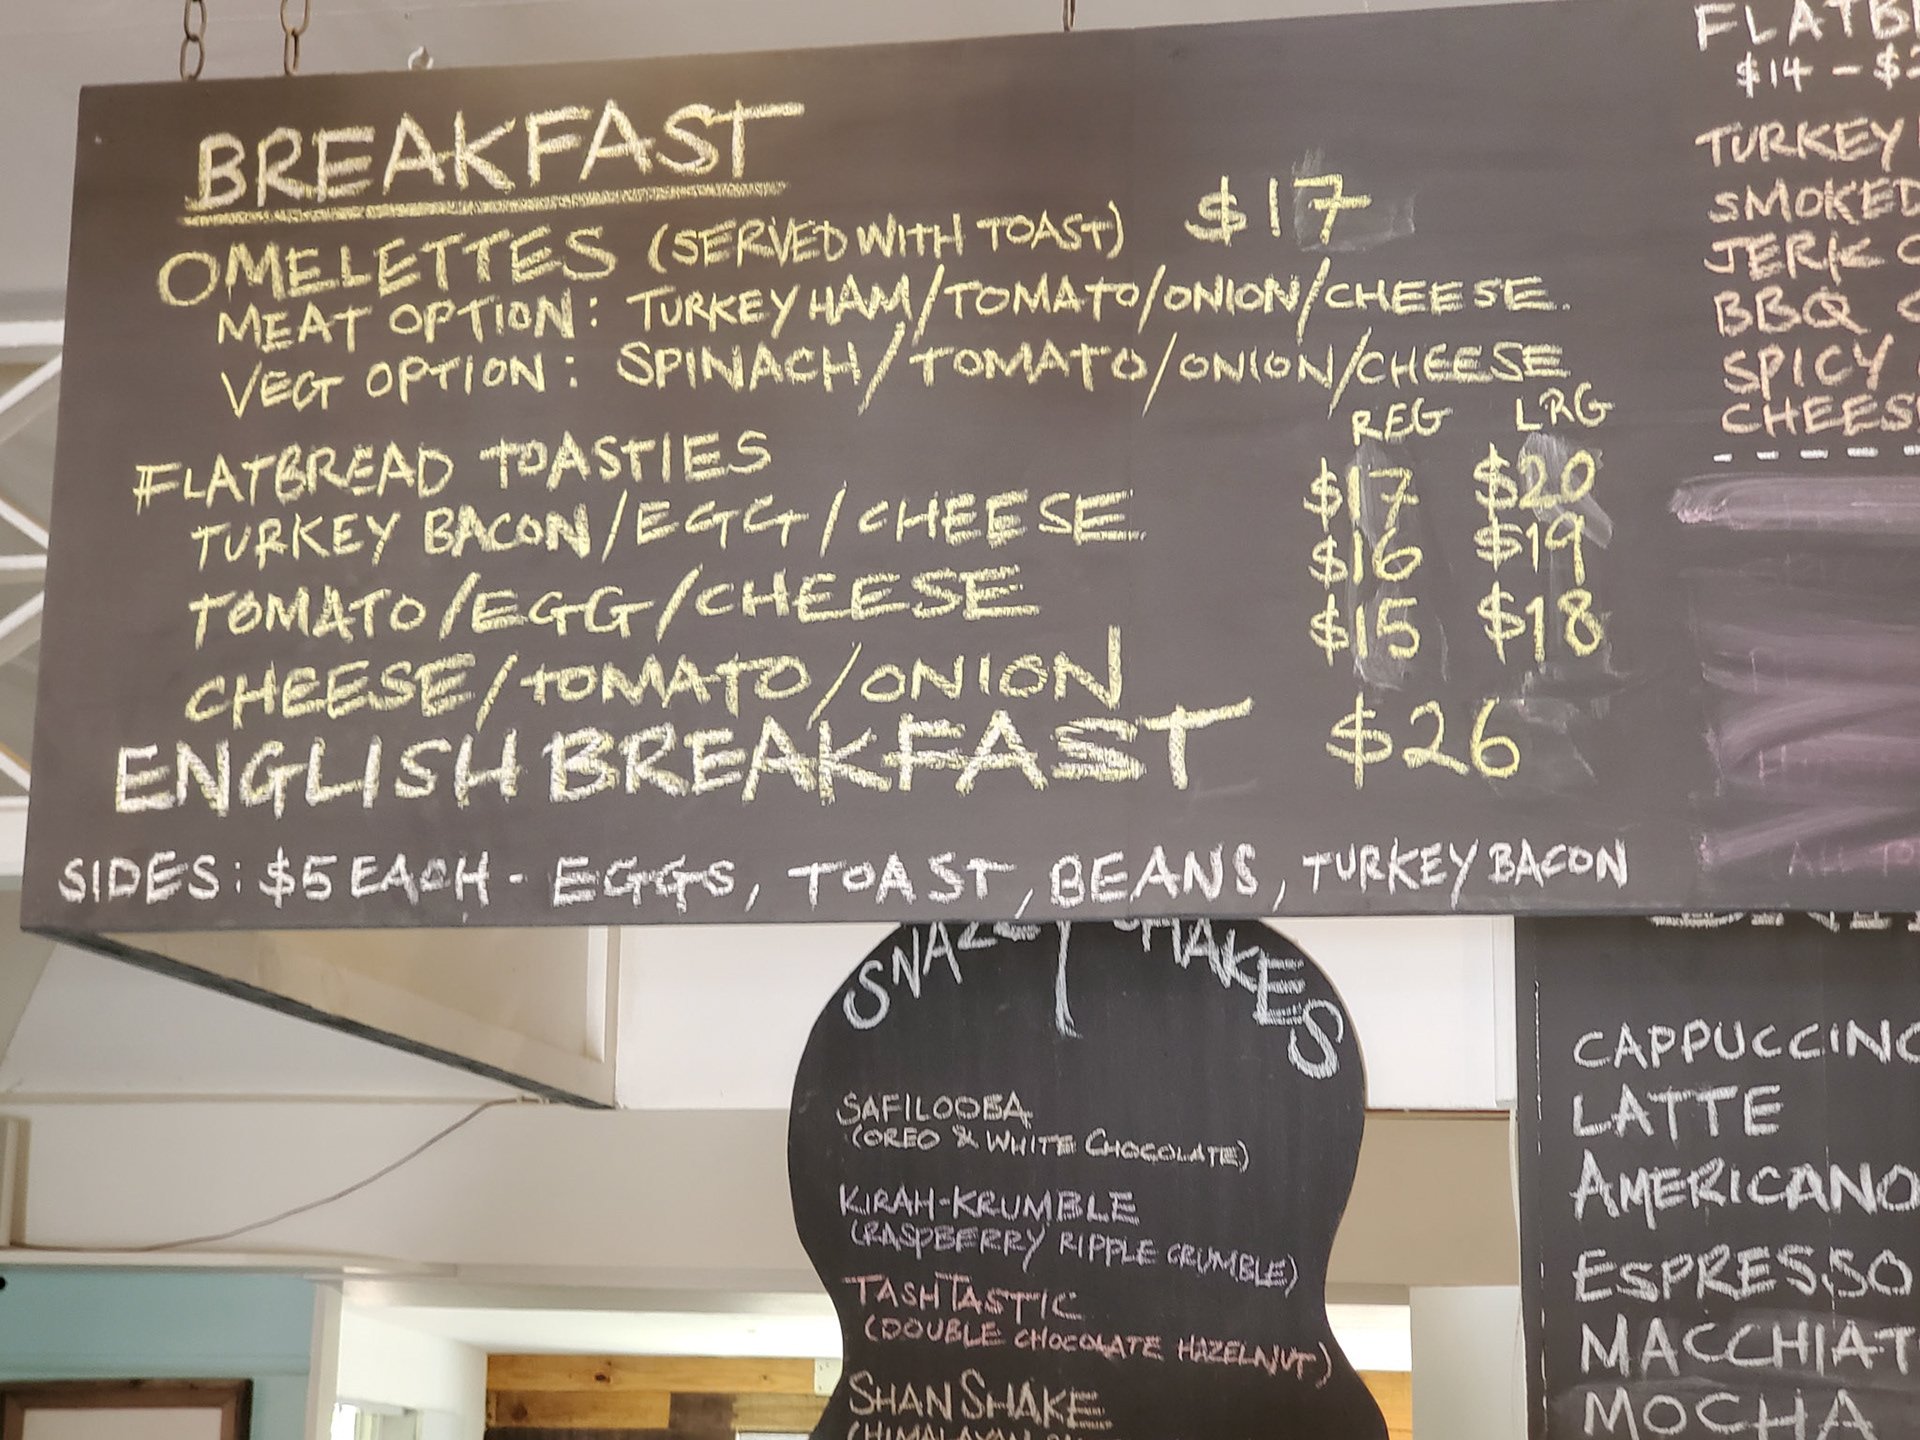 BREAKFAST
OMELETTES (SERVED WITH TOAST) $17
MEAT OPTION: TURKEY HAM/TOMATO/ONION/CHEESE.
VEG OPTION: SPINACH/TOMATO/ONION/CHEESE
REG LRG
FLATBREAD TOASTIES
TURKEY BACON/EGG/CHEESE $17 $20
TOMATO/EGG/CHEESE $16 $19
CHEESE/TOMATO/ONION $15 $18
ENGLISH BREAKFAST $26
SIDES: $5 EACH - EGGS, TOAST, BEANS, TURKEY BACON
$14 - $2
TURKEY
SMOKED
JERK C
BBQ
SPICY
CHEESE
SNAZZY SHAKES
SAFILOOBA
(OREO & WHITE CHOCOLATE)
KIRAH-KRUMBLE
(RASPBERRY RIPPLE CRUMBLE)
TASHTASTIC
(DOUBLE CHOCOLATE HAZELNUT)
SHANSHAKE
CAPPUCCINO
LATTE
AMERICANO
ESPRESSO
MACCHIAT
MOCHA